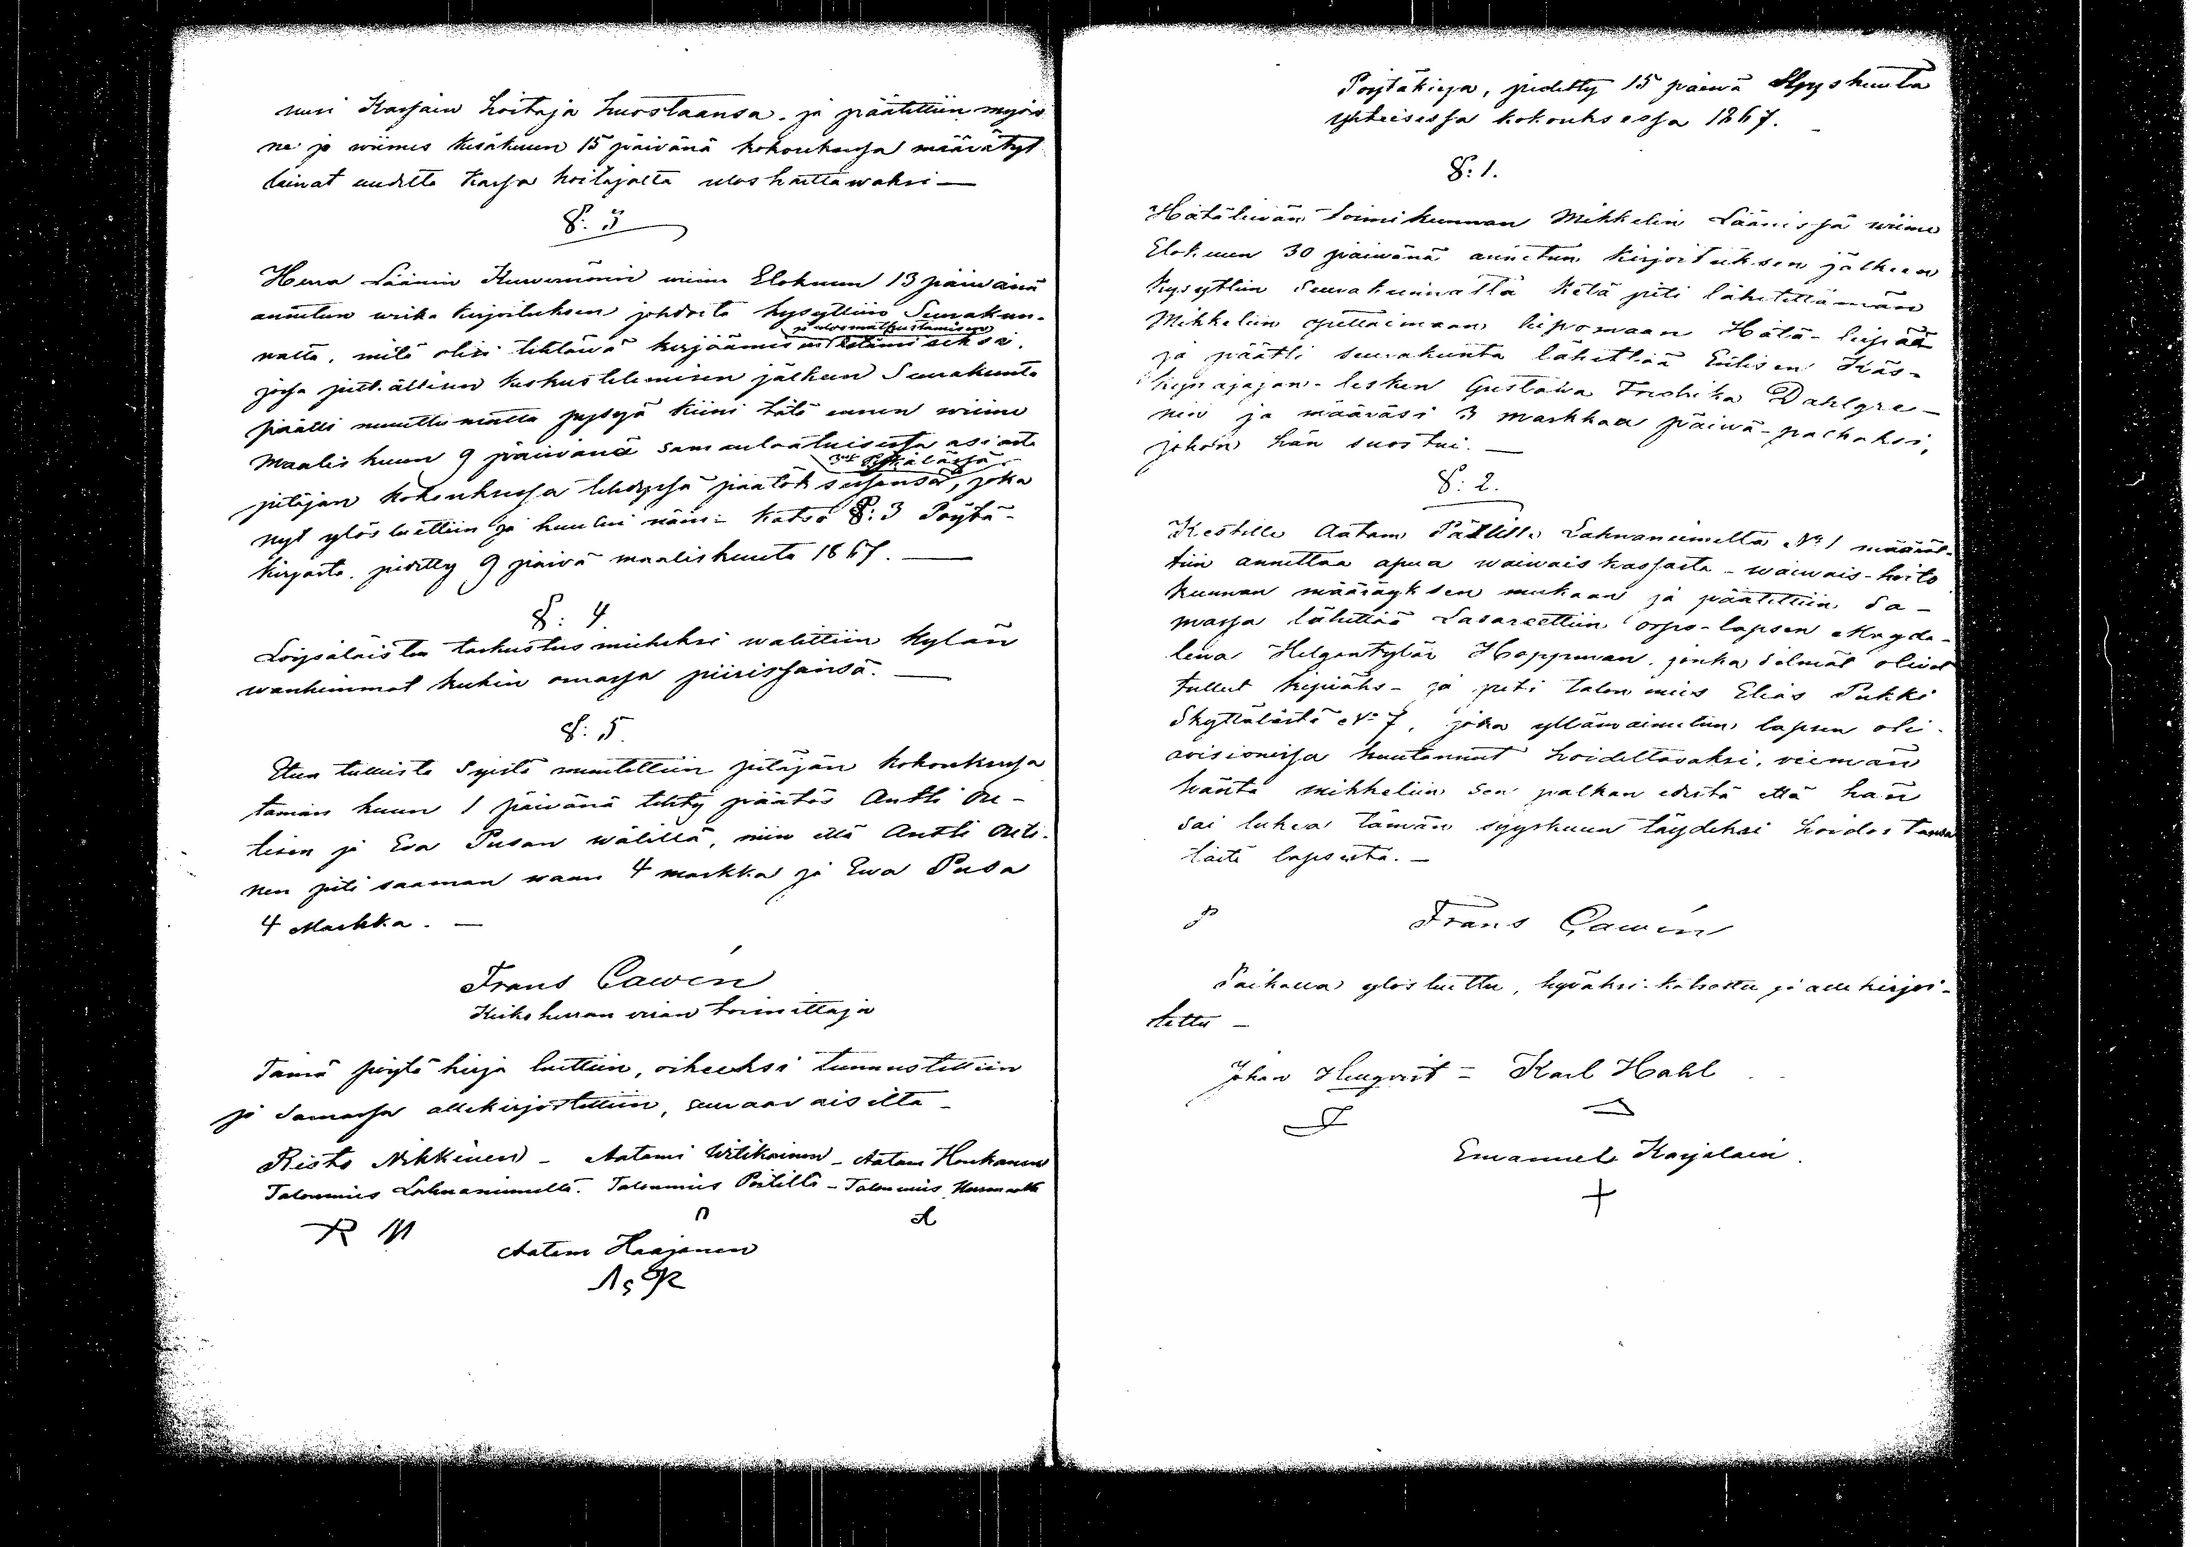 uusi Kassain hoitaja huostaansa. ja päätettiin myös
ne jo wiimes Kesäkuun 15 päivänä kokouksessa määrätyt
lainat uudelta Kassa hoitajalta uloshaettawaksi —
§: 3
Herra Läänin Kuvernörin wiime Elokuun 13 päiwänä
annetun kirjoituksen johdosta kysyttiin Seurakun-
nalta, mitä olisi tehtäwä kerjäämisen
ja ulosmatkustamisen estämiseksi,
jossa pitkällisen keskustelemisen jälkeen Seurakunta
päätti muuttumatta pysyä kiini tätä ennen wiime
Maaliskuun 9 päiwänä samanlaatuisesta asiasta
pitäjän kokouksessa tehdyssä
3:ssa Pykälässä
päätöksessänsä, joka
nyt ylös luettiin ja kuului näin: katso §: 3 Pöytä-
kirjasta, pidetty 9 päiwä maaliskuuta 1867. —
§: 4.
Loisäläisten tarkustus mieheksi walittiin kylän
wanhimmat kukin omassa piirissänsä. —
§: 5.
syistä muutettiin pitäjän kokouksessa
tämän kuun 1 päivänä tehty päätös Antti Au-
tisen ja Eva Pusan wälillä, niin että Antti Auti-
nen piti saaman waan 4 markka ja Ewa Pusa
4 Markka. —
Frans Cawén
Kirkoherran viran toimittaja
Tämä pöytäkirja luettiin, oikeaksi tunnustettiin
ja samassa allekirjotettiin, seuraavaisilta —
Risto Nikkinen – Aatami Witikainen – Aatam Honkanen
Talonmies Lahnaniemeltä. Talonmies – Talonmies
R N A
Aatam Haajanen
Pöytäkirja, pidetty 15 päiwä Syyskuuta
Yhteisessä kokouksessa 1867. –
§: 1.
Hätäleivän toimikunnan Mikkelin Läänissä wiime
Elokuun 30 päiwänä annetun kirjoituksen jälkeen
kysyttiin Seurakunnalta ketä piti lähetettämän
Mikkeliin opettaimaan leipomaan Hätä-leipää
ja päätti seurakunta lähettää Entisen Käs-
kynajajan-lesken Gustava Fredrika Dahlgre-
nin ja määräsi 3 markkaa päiwä-palkaksi,
johon hän suostui. —
§: 2.
Kestille Aatam Lahnaniemeltä No 1 määrät-
tiin annettaa apua waiwaiskassasta – waiwais-hoito
kunnan määräyksen mukaan ja päätettiin Sa-
massa lähettää Lasarettiin orpo-lapsen Magda-
lena Helgentytär Hoppman, jonka silmät olivat
tullut kipiäks – ja piti talonmies Elias Pukki
Skyttälästä No 7, joka ylläwainitun lapsen oli
huutannut hoidettavaksi, viemän
häntä Mikkeliin sen palkan edestä että hän
sai lukea tämän syyskuun täydeksi hoidostansa
tästä lapsesta. —
Frans Cawén
Paikalla ylös luettu, hyväksi katsottu ja allekirjoi-
tettu –
Johan Hengvist – Karl Hahl
Emanuel Karjalain.